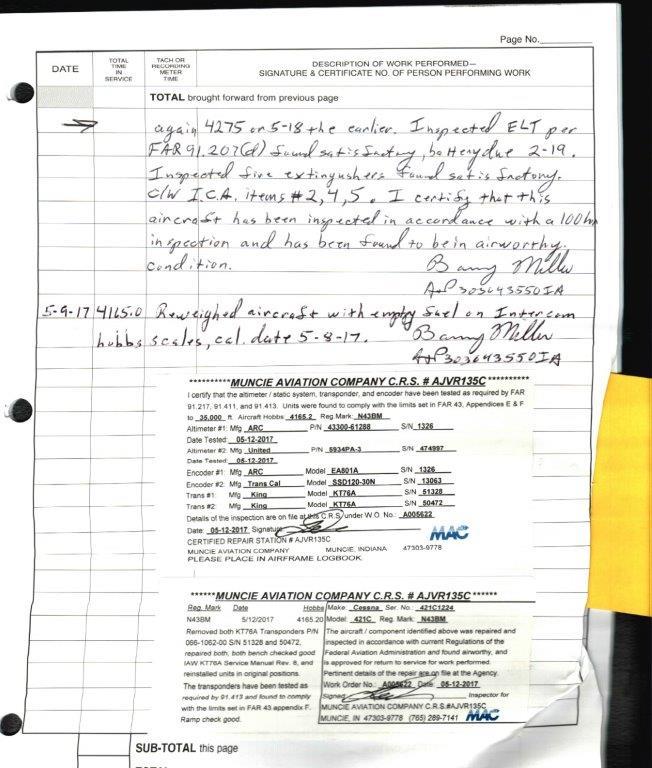 Page No.
DATE
TOTAL TIME IN SERVICE
TACH OR RECORDING METER TIME
DESCRIPTION OF WORK PERFORMED—
SIGNATURE & CERTIFICATE NO. OF PERSON PERFORMING WORK
TOTAL brought forward from previous page
again 4275 or 5-18 the earlier. Inspected ELT per
FAR 91.207(d) found satisfactory, battery due 2-19.
Inspected fire extingushers found satisfactory.
C/W I.C.A. items #2,4,5. I certify that this
aircraft has been inspected in accordance with a 100 hr
inspection and has been found to be in airworthy
condition. Barry Miller
A+P 303643550 IA
5-9-17 4165.0 Reweighed aircraft with empty fuel on Intercomp
hobbs scales, cal. date 5-8-17. Barry Miller
A+P 303643550 IA
**********MUNCIE AVIATION COMPANY C.R.S. # AJVR135C**********
I certify that the altimeter / static system, transponder, and encoder have been tested as required by FAR
91.217, 91.411, and 91.413. Units were found to comply with the limits set in FAR 43, Appendices E & F
to 35,000 ft. Aircraft Hobbs 4165.2 Reg. Mark: N43BM
Altimeter #1: Mfg ARC P/N 43300-61288 S/N 1326
Date Tested: 05-12-2017
Altimeter #2: Mfg United P/N 5934PA-3 S/N 474997
Date Tested: 05-12-2017
Encoder #1: Mfg ARC Model EA801A S/N 1326
Encoder #2: Mfg Trans Cal Model SSD120-30N S/N 13063
Trans #1: Mfg King Model KT76A S/N 51328
Trans #2: Mfg King Model KT76A S/N 50472
Details of the inspection are on file at this C.R.S. under W.O. No.: A005622
Date: 05-12-2017 Signature
MAC
CERTIFIED REPAIR STATION # AJVR135C
MUNCIE AVIATION COMPANY MUNCIE, INDIANA 47303-9778
PLEASE PLACE IN AIRFRAME LOGBOOK
******MUNCIE AVIATION COMPANY C.R.S. # AJVR135C******
Reg. Mark Date Hobbs
N43BM 5/12/2017 4165.20
Removed both KT76A Transponders P/N
066-1062-00 S/N 51328 and 50472,
repaired both, both bench checked good
IAW KT76A Service Manual Rev. 8, and
reinstalled units in original positions.
The transponders have been tested as
required by 91.413 and found to comply
with the limits set in FAR 43 appendix F.
Ramp check good.
Make: Cessna Ser. No.: 421C1224
Model: 421C Reg. Mark: N43BM
The aircraft / component identified above was repaired and
inspected in accordance with current Regulations of the
Federal Aviation Administration and found airworthy, and
is approved for return to service for work performed.
Pertinent details of the repair are on file at the Agency.
Work Order No.: A005622 Date: 05-12-2017
Signed Inspector for
MUNCIE AVIATION COMPANY C.R.S.#AJVR135C
MUNCIE, IN 47303-9778 (765) 289-7141 MAC
SUB-TOTAL this page